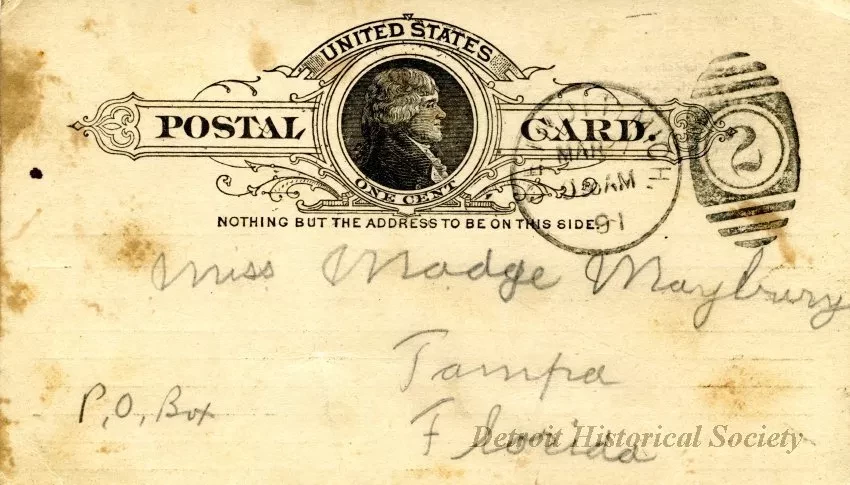 UNITED STATES
POSTAL CARD.
ONE CENT
NOTHING BUT THE ADDRESS TO BE ON THIS SIDE.
MICH
MAR
12 AM
91
2
Miss Madge Maybury
Tampa
P.O. Box
Florida
Detroit Historical Society